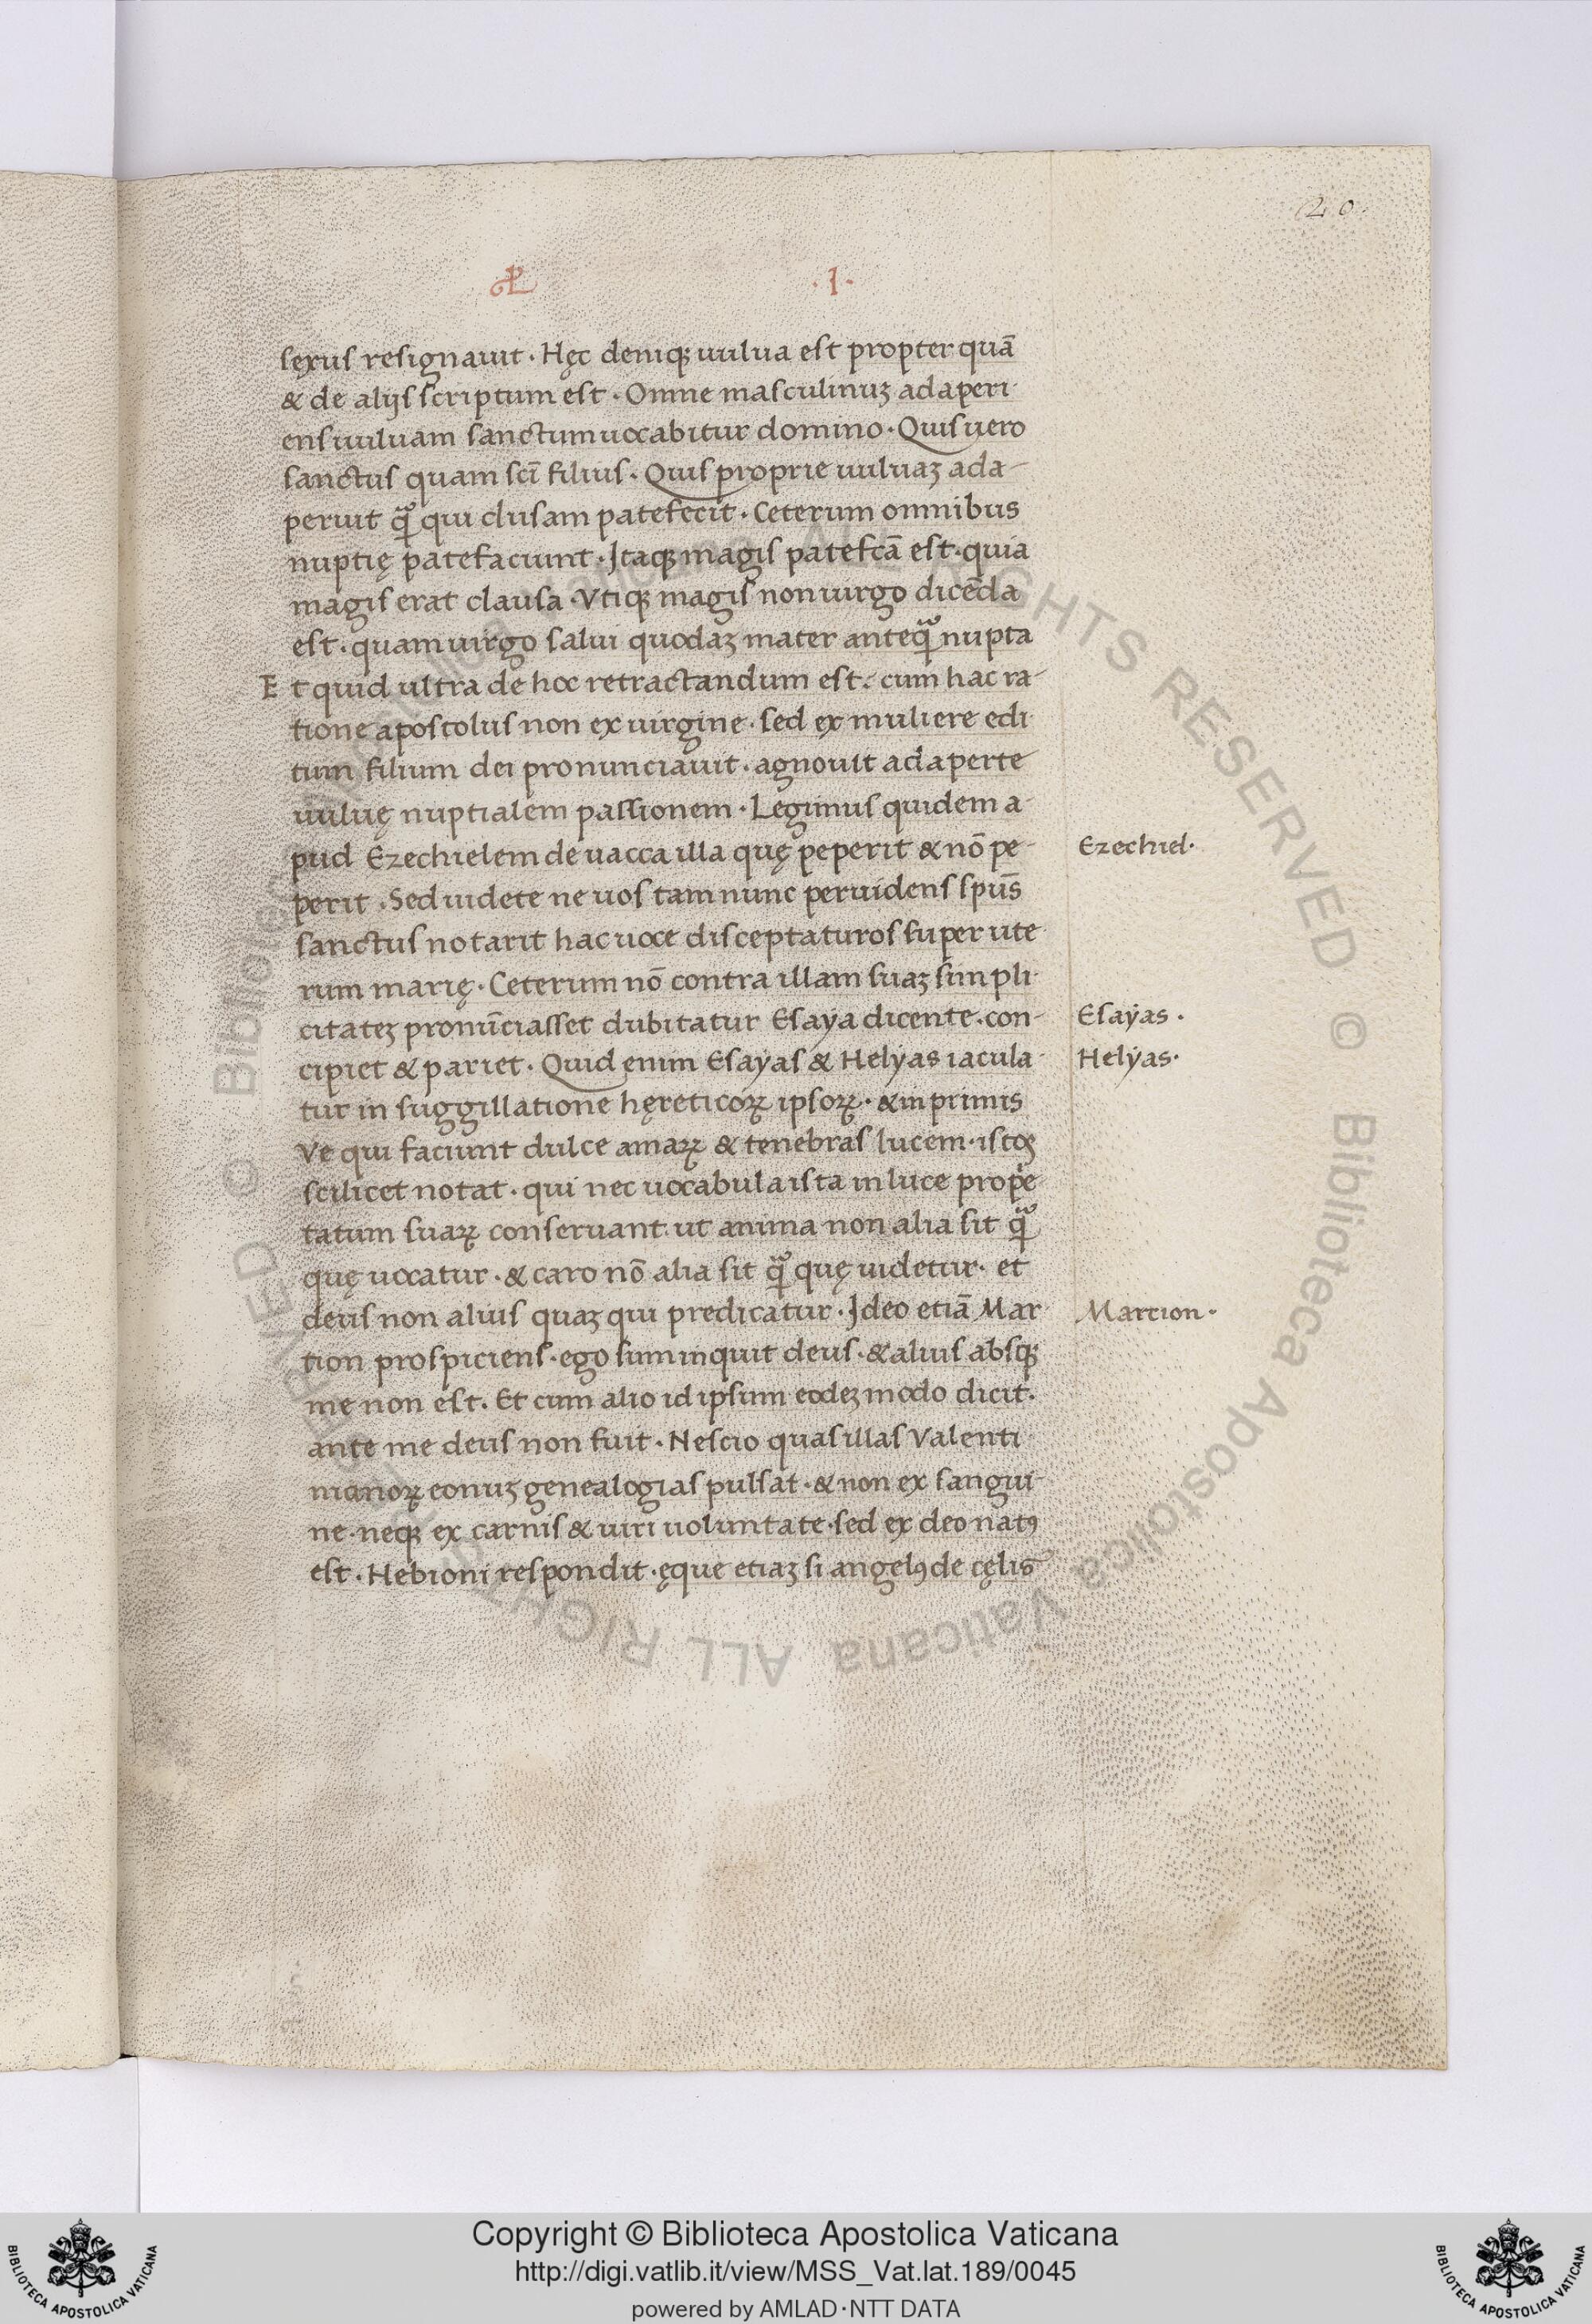 20
PL · I ·
sexus resignauit · Hęc deniqꝫ uulua est propter quā
& de alijs scriptum est · Omne masculinuꝫ adaperi-
ens uuluam sanctum uocabitur domino · Quis uero
sanctus quam sci̅ filius · Quis proprie uuluaꝫ ada-
peruit qᷓ qui clusam patefecit · Ceterum omnibus
nuptię patefaciunt · Itaqꝫ magis patefcā est · quia
magis erat clausa · Vtiqꝫ magis non uirgo dicēda
est · quam uirgo salui quodaꝫ mater anteqᷓ nupta
Et quid ultra de hoc retractandum est · cum hac ra-
tione apostolus non ex uirgine · sed ex muliere edi-
tum filium dei pronunciauit · agnouit adaperte
uuluę nuptialem passionem · Legimus quidem a-
pud Ezechielem de uacca illa quę peperit & nō pe-
perit · Sed uidete ne uos tam nunc peruidens spūs
sanctus notarit hac uoce disceptaturos super ute-
rum marię · Ceterum nō contra illam suaꝫ simpli-
citateꝫ pronūciasset dubitatur Esaya dicente · con-
cipiet & pariet · Quid enim Esayas & Helyas iacula-
tur in suggillatione hęreticoꝝ ipsoꝝ · & in primis
Ve qui faciunt dulce amaꝝ & tenebras lucem · istos
scilicet notat · qui nec uocabula ista in luce prope
tatum suaꝝ conseruant · ut anima non alia sit qᷓ
quę uocatur · & caro nō alia sit qᷓ quę uidetur · et
deus non alius quaꝫ qui predicatur · Ideo etiā Mar-
tion prospiciens · ego sum inquit deus · & alius absqꝫ
me non est · Et cum alio id ipsum eodeꝫ modo dicit ·
ante me deus non fuit · Nescio quas illas Valenti-
nianoꝝ eonuꝫ genealogias pulsat · & non ex sangui-
ne · neqꝫ ex carnis & uiri uoluntate · sed ex deo natꝯ
est · Hebioni respondit · ęque etiaꝫ si angelꝯ de cęlis
Ezechiel ·
Esayas ·
Helyas ·
Martion ·
© Biblioteca Apostolica Vaticana ALL RIGHTS RESERVED © Biblioteca Apostolica Vaticana ALL RIGHTS RESERVED
Copyright © Biblioteca Apostolica Vaticana
http://digi.vatlib.it/view/MSS_Vat.lat.189/0045
powered by AMLAD·NTT DATA
BIBLIOTECA APOSTOLICA VATICANA
BIBLIOTECA APOSTOLICA VATICANA